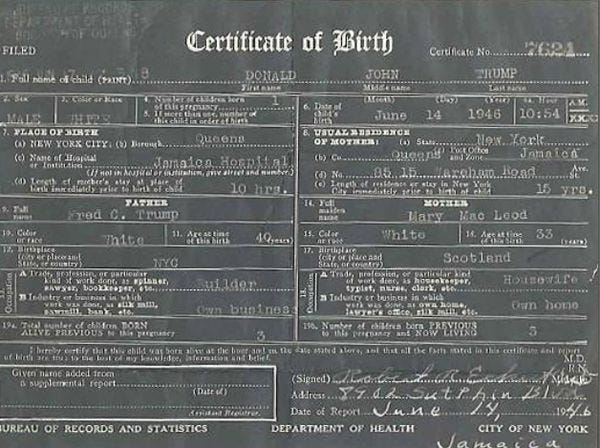 BUREAU OF RECORDS
DEPARTMENT OF HEALTH
BOROUGH OF QUEENS
FILED
Certificate of Birth
Certificate No. 7621
1. Full name of child (PRINT) DONALD JOHN TRUMP
First name Middle name Last name
2. Sex MALE
3. Color or Race WHITE
4. Number of children born of this pregnancy 1
5. If more than one, number of this child in order of birth
6. Date of child's birth (Month) (Day) (Year) June 14 1946
6a. Hour 10:54 A.M.
7. PLACE OF BIRTH
(a) NEW YORK CITY: (b) Borough Queens
(c) Name of Hospital or Institution Jamaica Hospital
(If not in hospital or institution, give street and number.)
(d) Length of mother's stay at place of birth immediately prior to birth of child 10 hrs.
8. USUAL RESIDENCE OF MOTHER: (a) State New York
(b) Co. Queens (c) Post Office and Zone Jamaica
(d) No. 85 15 Wareham Road Ave. St.
(e) Length of residence or stay in New York City immediately prior to birth of child 15 yrs.
FATHER
9. Full name Fred C. Trump
10. Color or race White
11. Age at time of this birth 40 (years)
12. Birthplace (city or place and State, or country) NYC
Occupation
A Trade, profession, or particular kind of work done, as spinner, sawyer, bookkeeper, etc. Builder
B Industry or business in which work was done, as silk mill, sawmill, bank, etc. Own business
19a. Total number of children BORN ALIVE PREVIOUS to this pregnancy 3
MOTHER
14. Full maiden name Mary Mac Leod
15. Color or race White
16. Age at time of this birth 33 (years)
17. Birthplace (city or place and State, or country) Scotland
18. Occupation
A Trade, profession, or particular kind of work done, as housekeeper, typist, nurse, clerk, etc. Housewife
B Industry or business in which work was done, as own home, lawyer's office, silk mill, etc. Own home
19b. Number of children born PREVIOUS to this pregnancy and NOW LIVING 3
I hereby certify that this child was born alive at the hour and on the date stated above, and that all the facts stated in this certificate and report of birth are true to the best of my knowledge, information and belief.
Given name added from a supplemental report
(Date of)
Assistant Registrar.
(Signed) M.D. R.N. Midwife
Address 8906 Sutphin Blvd
Date of Report June 14 1946
BUREAU OF RECORDS AND STATISTICS DEPARTMENT OF HEALTH CITY OF NEW YORK
Jamaica